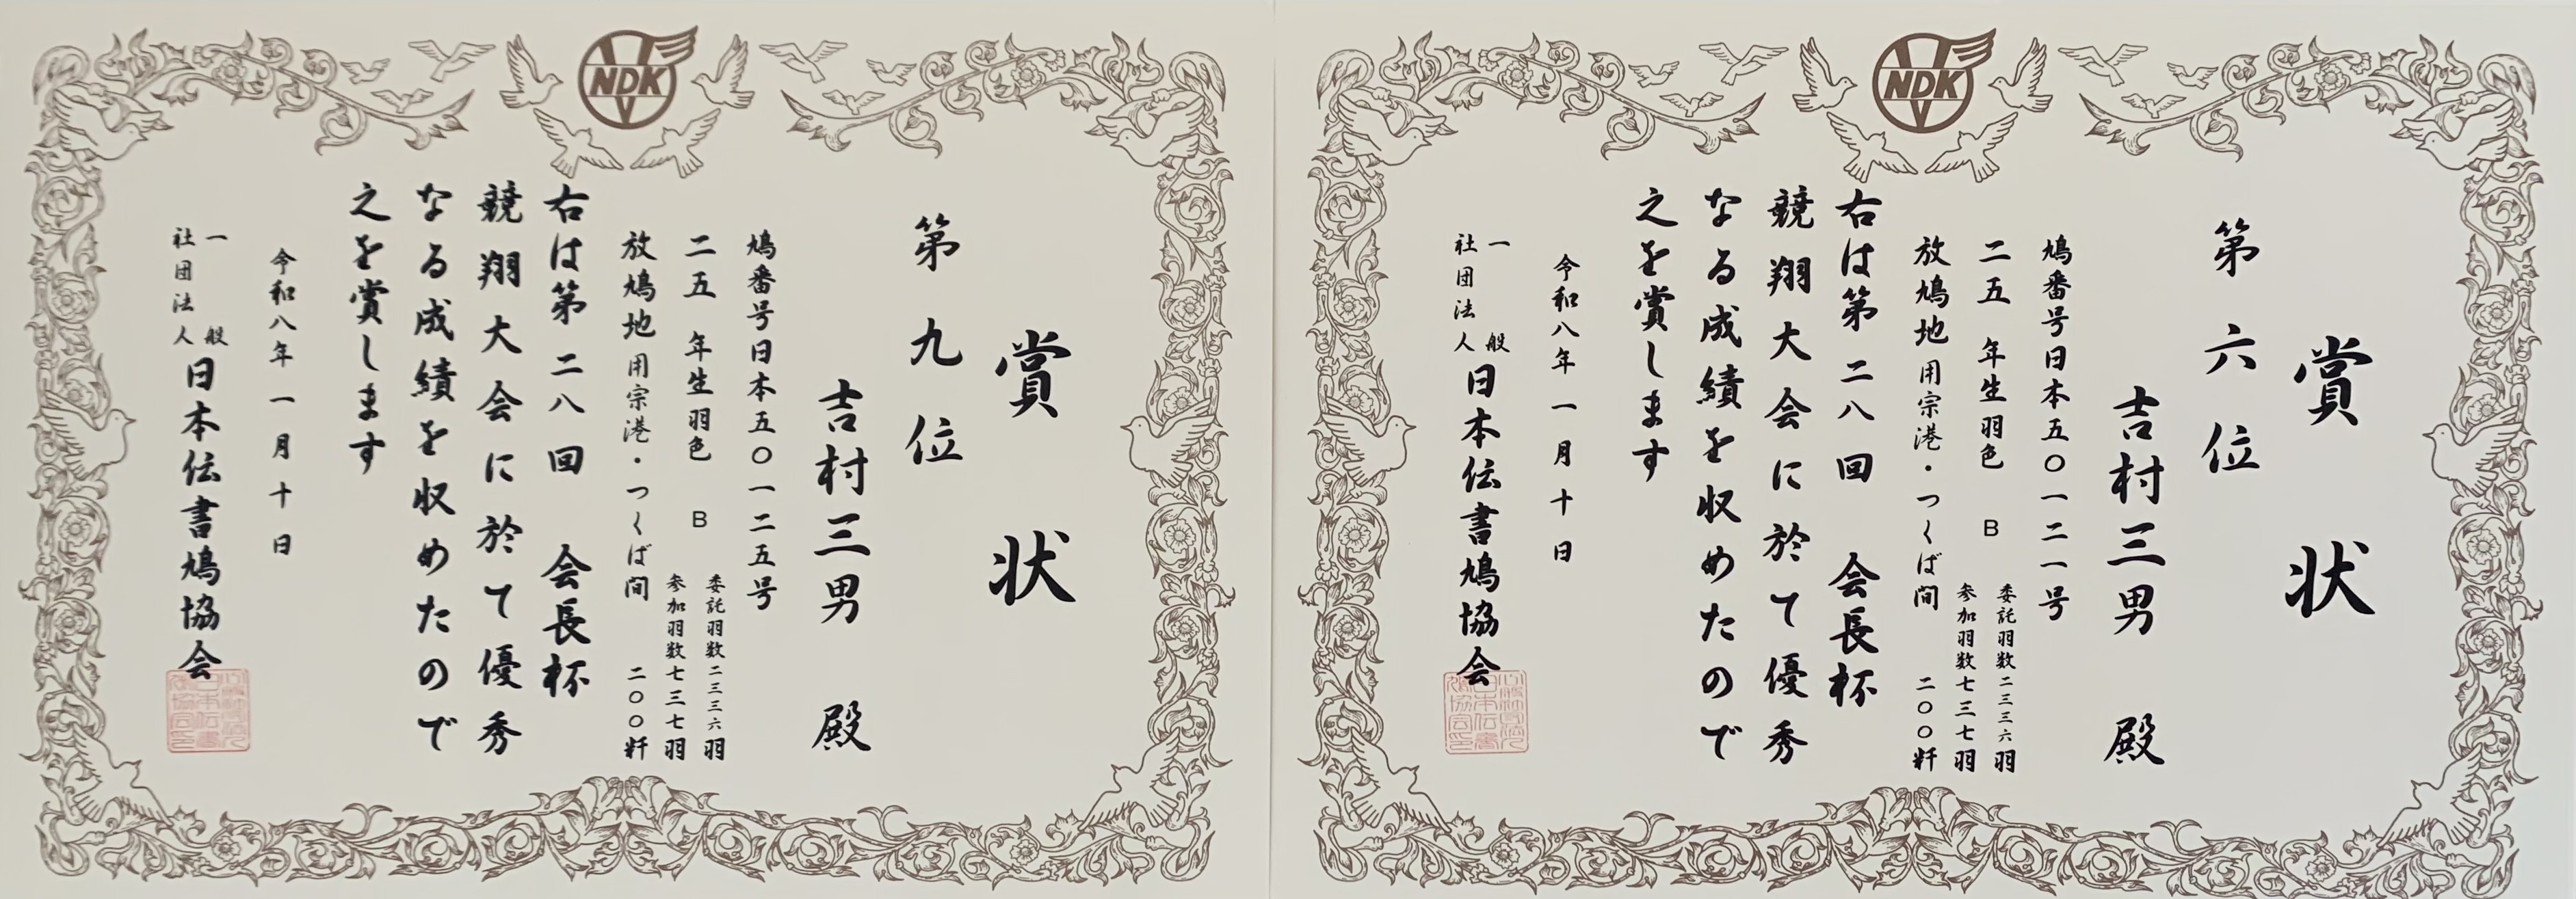 NDK
賞状
第九位
吉村三男 殿
鳩番号日本五〇一二五号
二五 年生羽色 B
委託羽数二三三六羽
参加羽数七三七羽
放鳩地用宗港・つくば間 二〇〇粁
右は第二八回 会長杯
競翔大会に於て優秀
なる成績を収めたので
之を賞します
令和八年一月十日
一般
社団法人
日本伝書鳩協会
NDK
賞状
第六位
吉村三男 殿
鳩番号日本五〇一二一号
二五 年生羽色 B
委託羽数二三三六羽
参加羽数七三七羽
放鳩地用宗港・つくば間 二〇〇粁
右は第二八回 会長杯
競翔大会に於て優秀
なる成績を収めたので
之を賞します
令和八年一月十日
一般
社団法人
日本伝書鳩協会